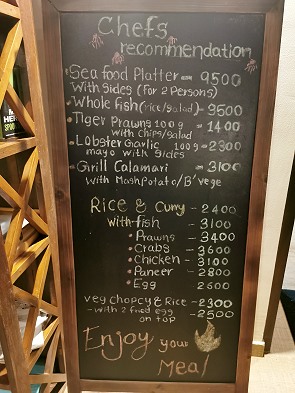 Chefs
recommendation
Sea food Platter - 9500
With sides (for 2 Persons)
Whole fish (rice/salad) - 3500
Tiger Prawns 100g - 1400
with chips/salad
Lobster Garlic 100g = 2300
mayo with sides
Grill Calamari - 3100
with Mash Potato/B'vege
Rice & Curry - 2400
with fish - 3100
Prawns - 3400
Crabs - 3600
Chicken - 3100
Paneer - 2800
Egg - 2600
veg chopcy & Rice - 2300
- with 2 fried egg - 2500
on top
Enjoy your
Meal